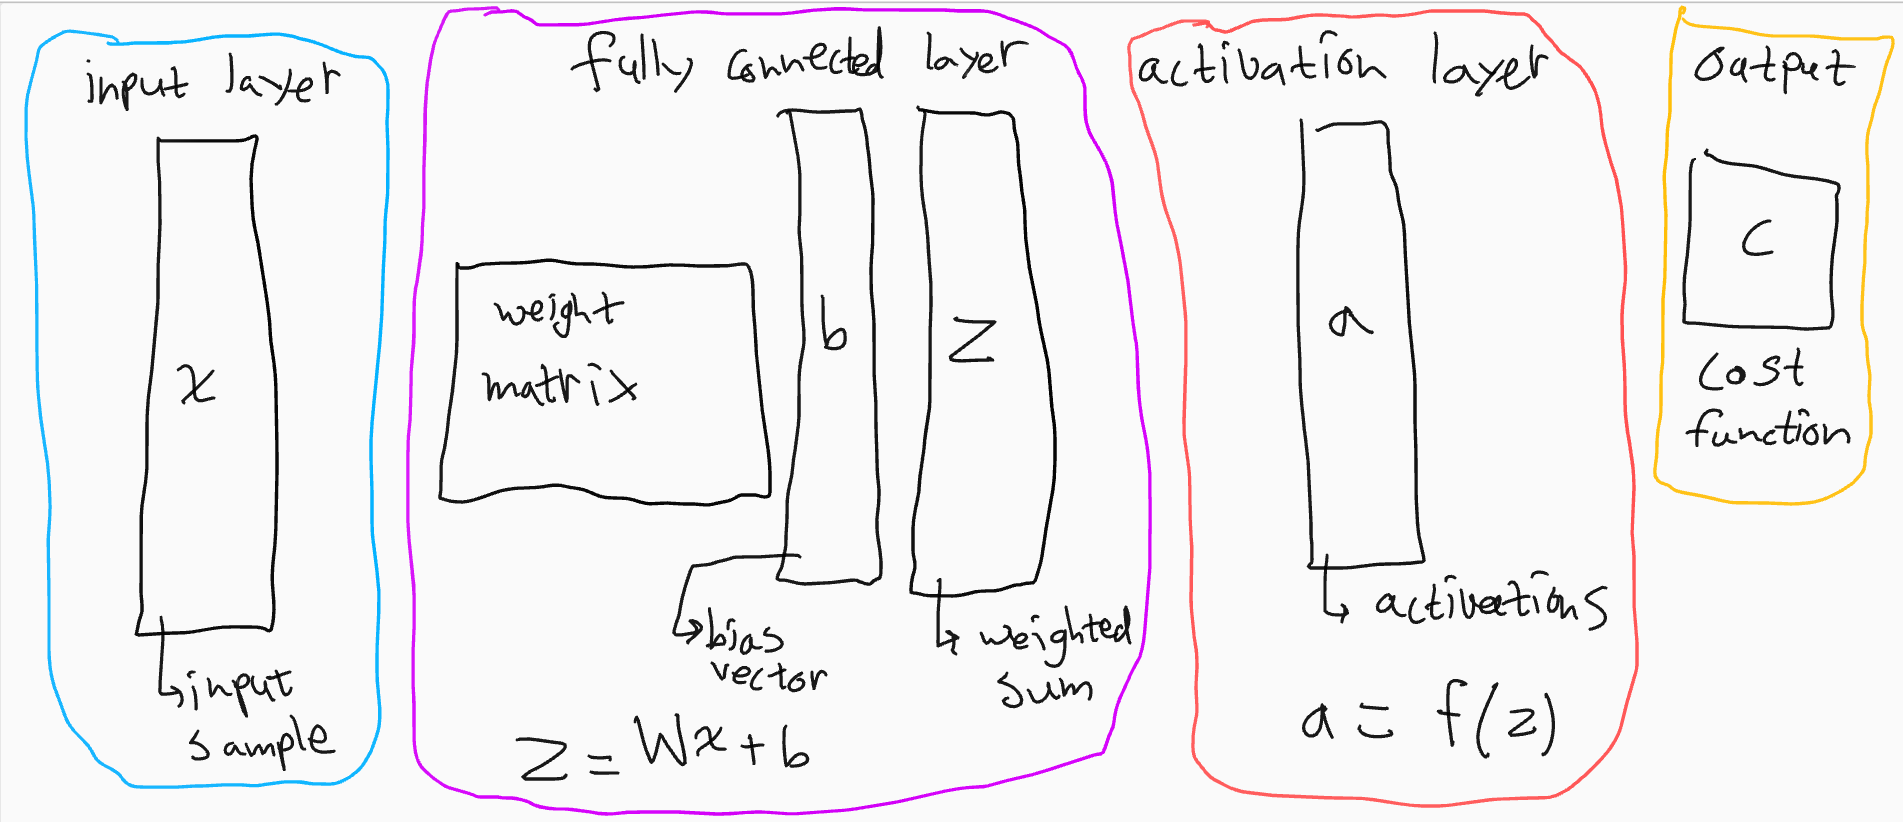 input layer
x
input
sample
fully connected layer
weight
matrix
b
z
bias
vector
weighted
sum
z = Wx + b
activation layer
a
activations
a = f(z)
output
C
cost
function